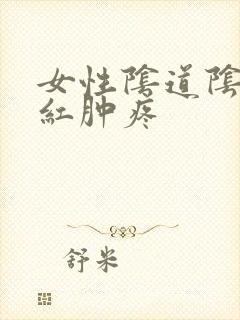 女性陰道陰
紅肿疼
舒米